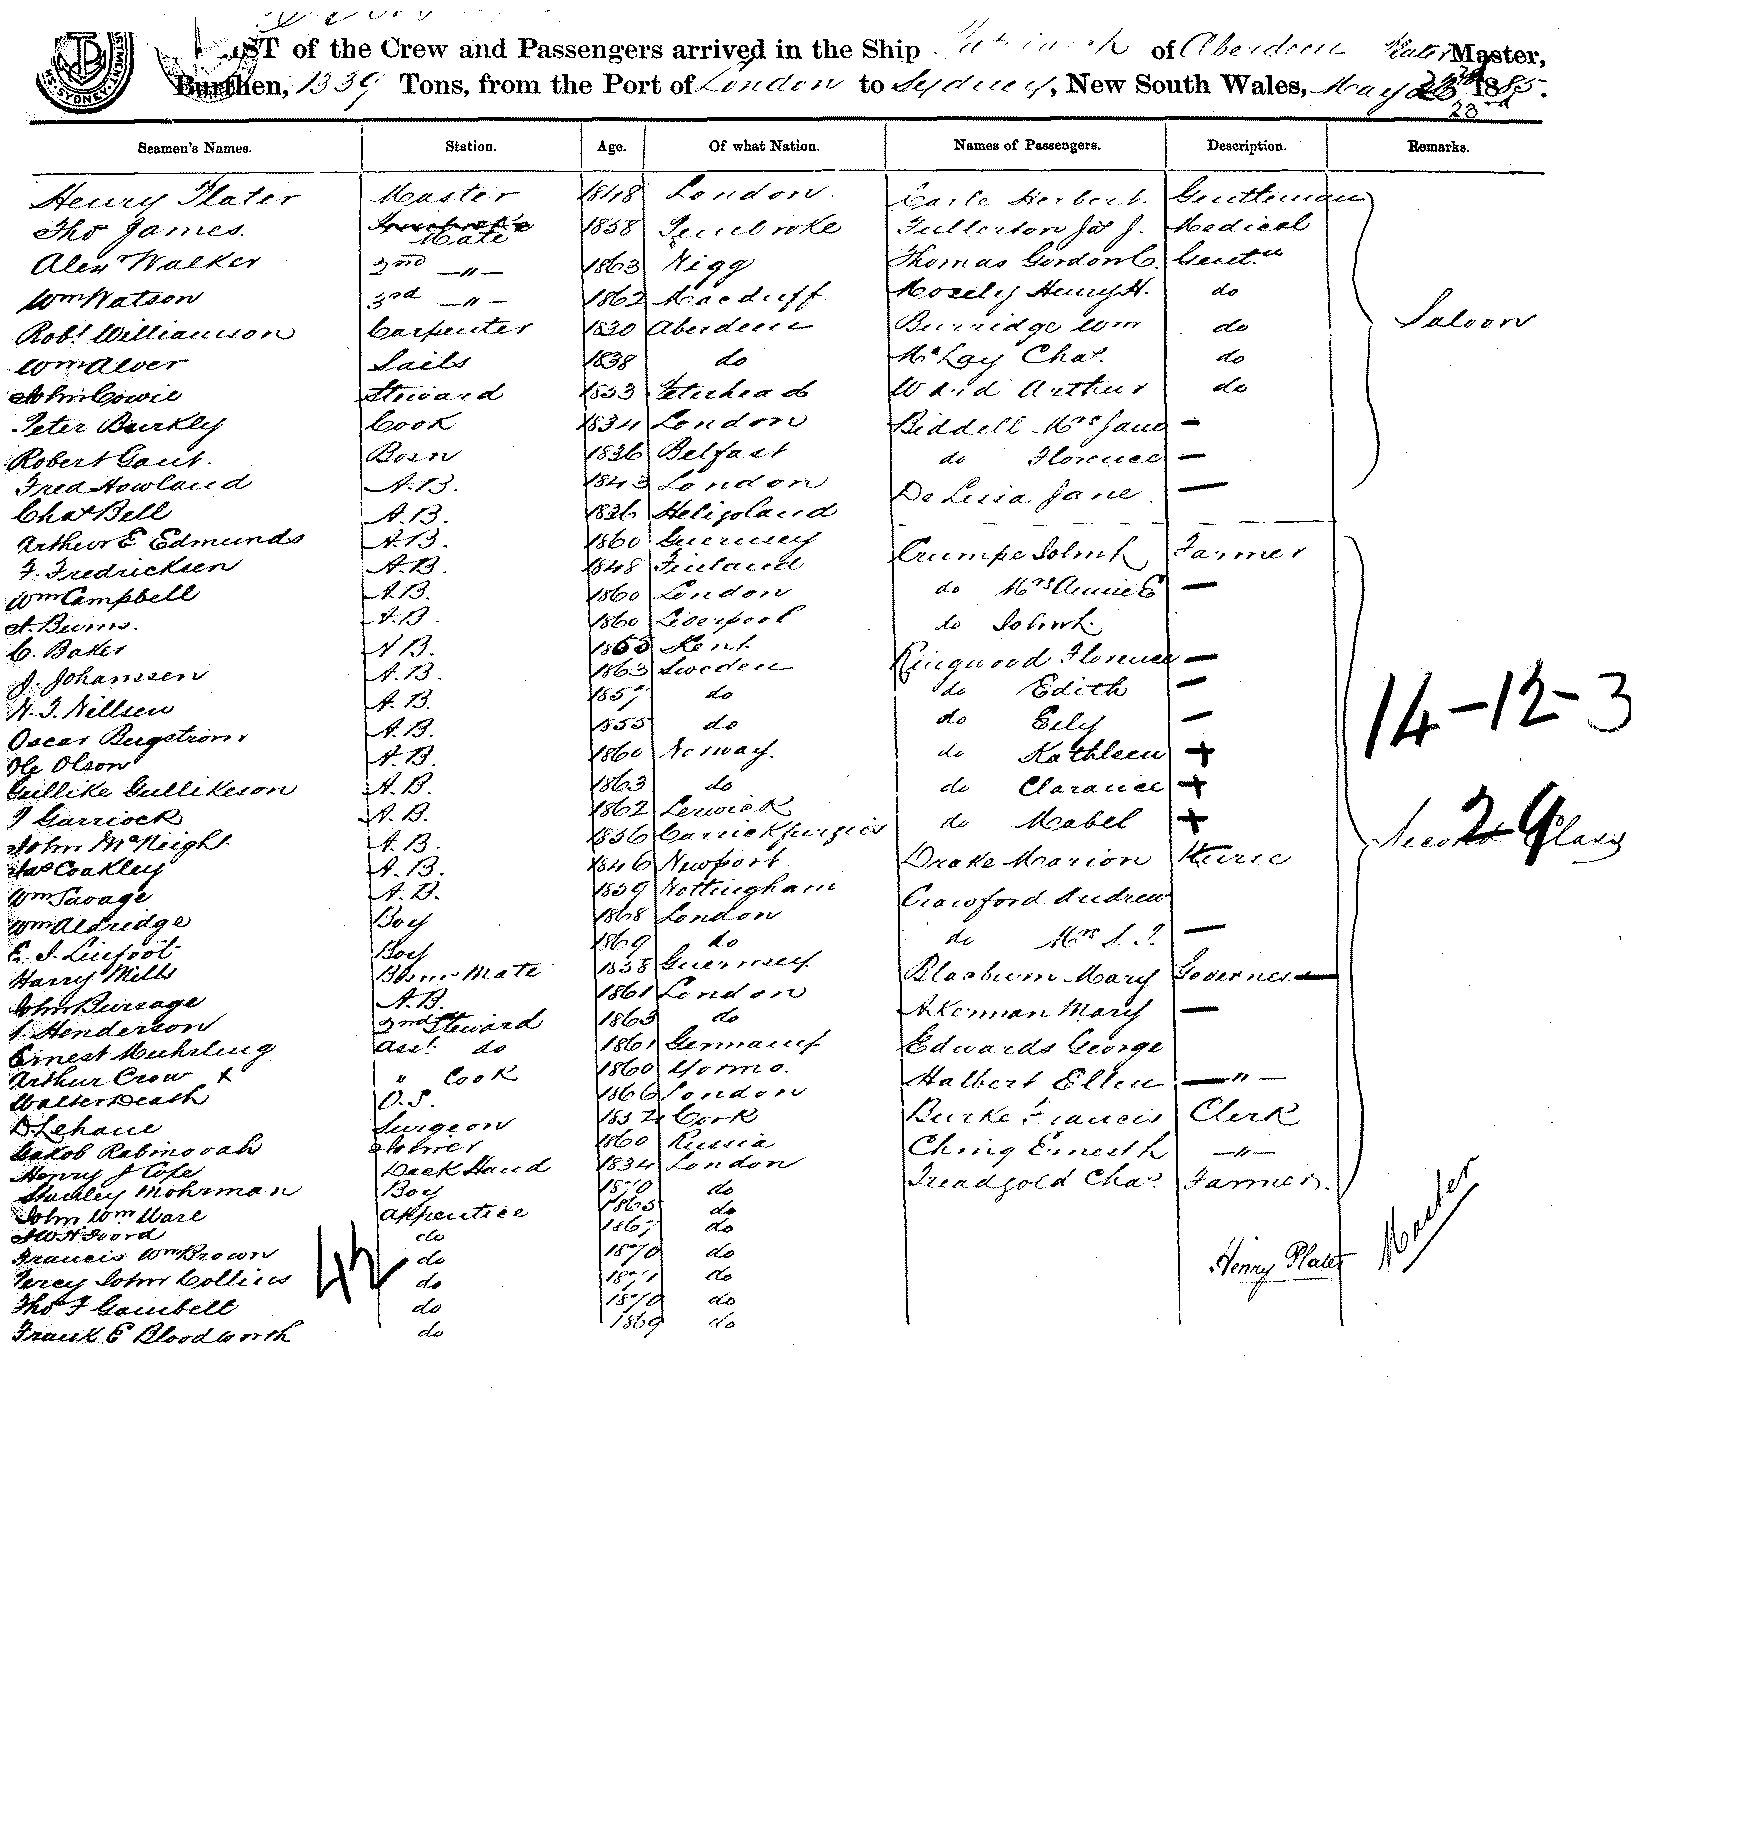 LIST of the Crew and Passengers arrived in the Ship Patriarch of Aberdeen Plater Master,
Burthen, 1339 Tons, from the Port of London to Sydney, New South Wales, May 23rd 1885.
Seamen's Names. Station. Age. Of what Nation. Names of Passengers. Description. Remarks.
Henry Plater Master 1848 London Earle Herbert Gentleman
Tho James. Mate 1858 Pembroke Fullerton Jas J. Medical
Alex Walker 2nd —"— 1863 Nigg Thomas Gordon C. Gentn
Wm Watson 3rd —"— 1862 Macduff Mosely Henry H. do
Robt Williamson Carpenter 1830 Aberdeen Burridge Wm do
Saloon
Wm Alver Sails 1838 do McLay Chas. do
John Cowie Steward 1853 Peterhead Ward Arthur do
Peter Burkley Cook 1834 London Biddell Mrs Jane —
Robert Gant. Bosn 1836 Belfast do Florence —
Fred Howland A.B. 1843 London De Jane —
Chas Bell A.B. 1836 Heligoland
Arthur E Edmunds A.B. 1860 Guernsey Crumpe John h Farmer
F. Fredricksen A.B. 1848 Finland
Wm Campbell A.B. 1860 London do Mrs Annie E —
A. Burns. A.B. 1860 Liverpool do John h.
C. Baker A.B. Kent
J. Johanssen A.B. 1863 Sweden Ringwood Florence —
N. J. Nillsen A.B. 1857 do do Edith —
14-12-3
Oscar Bergstrom A.B. 1855 do do Eily —
Ole Olson A.B. 1860 Norway. do Kathleen +
Gullike Gullikeson A.B. 1863 do do Clarance +
J Garriock A.B. 1862 Lerwick do Mabel +
John McNeight A.B. 1836 Carrickfurgus
Second Class
29
Jas Coakley A.B. 1846 Newport Drake Marion Nurse
Wm Savage A.B. 1859 Nottingham Crawford Andrew
Wm Aldridge Boy 1868 London
E. J. Linfoot Boy 1869 do do Mrs —
Harry Mills Bosns Mate 1858 Guernsey Blacburn Mary Governess —
John Bursage A.B. 1861 London Akerman Mary —
Henderson 2nd Steward 1863 do
Ernest Muhrling asst do 1861 Germany Edwards George
Arthur Crow x " Cook 1860 Halbert Ellen —"—
Walter Death O.S. 1866 London
D Lehane Surgeon 1852 Cork Burke Francis Clerk
Jakob Rabinovah 1860 Russia Ching Ernest h —"—
Henry J Cope Deck Hand 1834 London Treadgold Chas. Farmer.
Stanley Mohrman Boy 1870 do
John Wm Ware apprentice 1865 do
Foord do 1867 do
Francis Wm Brown do 1870 do Henry Plater Master
42
Percy John Collins do 1871 do
Tho F Gambell do 1870 do
Frank E Bloodworth do 1869 do